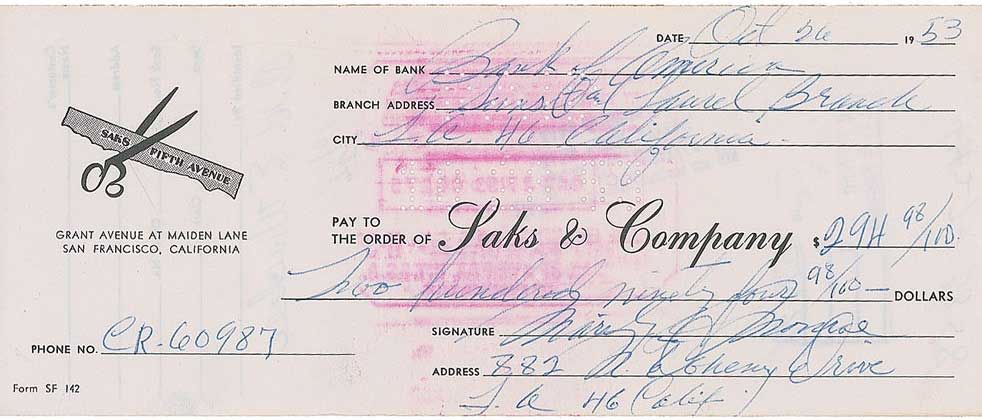 DATE Oct 26 1953
NAME OF BANK Bank of America
BRANCH ADDRESS Sunset and Laurel Branch
CITY L.A. 46 California
SAKS FIFTH AVENUE
GRANT AVENUE AT MAIDEN LANE
SAN FRANCISCO, CALIFORNIA
PAY TO
THE ORDER OF Saks & Company $ 294 98/100
Two hundred ninety four 98/100 DOLLARS
SIGNATURE Marilyn Monroe
PHONE NO. CR-60987
ADDRESS 882 N. Doheny Drive
L.A 46 Calif
Form SF 142